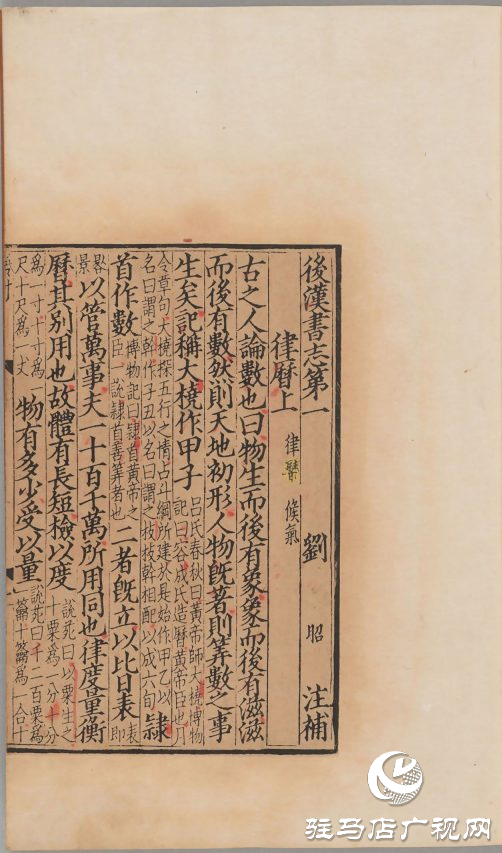 後漢書志第一 劉 昭 注補
律曆上 律 候氣
古之人論數也曰物生而後有象象而後有滋滋
而後有數然則天地初形人物旣著則筭數之事
生矣記稱大橈作甲子
呂氏春秋曰黃帝師大橈博物
記曰容成氏造曆黃帝臣也月
令章句大橈探五行之情占斗綱所建於是始作甲乙以
名日謂之幹作子丑以名月謂之枝枝幹相配以成六旬
隸
首作數
博物記曰隸首黃帝之
臣一說隸首善筭者也
二者旣立以比日表
表即
晷景
以管萬事夫一十百千萬所用同也律度量衡
曆其別用也故體有長短檢以度
說苑曰以粟生之
十粟爲一分十分
爲一寸十寸爲
尺十尺爲一丈
物有多少受以量
說苑曰千二百粟爲一
籥十籥爲一合十
驻马店广视网